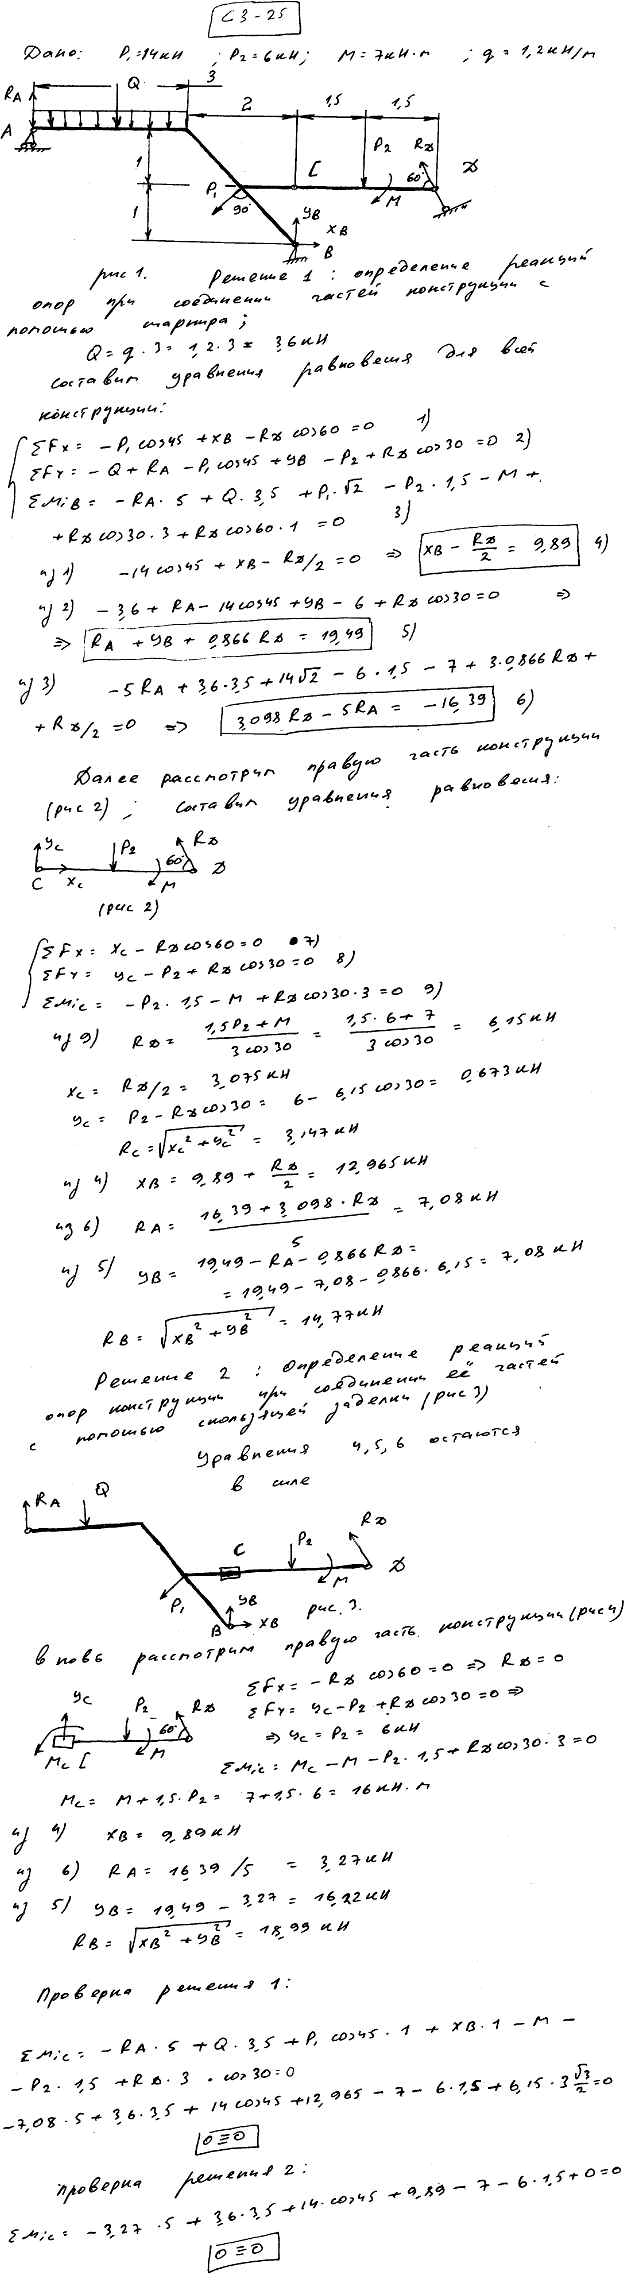 С3-25
Дано: P₁=14кН ; P₂=6кН; M=7кН·м ; q=1,2кН/м
3
RA Q
2 1,5 1,5
A
P₂ RД
1 C Д
P₁ 60°
90° M
1 YB
XB
B
рис 1. Решение 1: определение реакций
опор при соединении частей конструкции с
помошью шарнира;
Q=q·3=1,2·3=3,6кН
составим уравнения равновесия для всей
конструкции:
ΣFx= -P₁cos45+XB-RДcos60=0 1)
ΣFY= -Q+RA-P₁cos45+YB-P₂+RДcos30=0 2)
ΣMiB= -RA·5+Q·3,5+P₁·√2-P₂·1,5-M+
+RДcos30·3+RДcos60·1=0 3)
из 1) -14cos45+XB-RД/2=0 ⇒ XB-RД/2=9,89 4)
из 2) -3,6+RA-14cos45+YB-6+RДcos30=0 ⇒
⇒ RA+YB+0,866RД=19,49 5)
из 3) -5RA+3,6·3,5+14√2-6·1,5-7+3·0,866RД+
+RД/2=0 ⇒ 3,098RД-5RA=-16,39 6)
Далее рассмотрим правую часть конструкции
(рис 2); составим уравнения равновесия:
YC P₂ RД
60° Д
C XC M
(рис 2)
ΣFx= XC-RДcos60=0 7)
ΣFY= YC-P₂+RДcos30=0 8)
ΣMiC= -P₂·1,5-M+RДcos30·3=0 9)
из 9) RД= (1,5P₂+M)/(3cos30) = (1,5·6+7)/(3cos30) = 6,15кН
XC=RД/2=3,075кН
YC=P₂-RДcos30=6-6,15cos30=0,673кН
RC=√(XC²+YC²)=3,147кН
из 4) XB=9,89+RД/2=12,965кН
из 6) RA=(16,39+3,098·RД)/5=7,08кН
из 5) YB=19,49-RA-0,866RД=
=19,49-7,08-0,866·6,15=7,08кН
RB=√(XB²+YB²)=14,77кН
Решение 2: Определение реакций
опор конструкции при соединении её частей
с помошью скользящей заделки (рис 3)
Уравнения 4,5,6 остаются
в силе
RA Q
C P₂ RД
M Д
P₁ YB
B XB рис. 3.
вновь рассмотрим правую часть конструкции (рис4)
ΣFx= -RДcos60=0 ⇒ RД=0
YC P₂ RД ΣFY= YC-P₂+RДcos30=0 ⇒
60° ⇒ YC=P₂=6кН
MC C M ΣMiC= MC-M-P₂·1,5+RДcos30·3=0
MC=M+1,5·P₂=7+1,5·6=16кН·м
из 4) XB=9,89кН
из 6) RA=16,39/5=3,27кН
из 5) YB=19,49-3,27=16,22кН
RB=√(XB²+YB²)=18,99кН
Проверка решения 1:
ΣMiC= -RA·5+Q·3,5+P₁cos45·1+XB·1-M-
-P₂·1,5+RД·3·cos30=0
-7,08·5+3,6·3,5+14cos45+12,965-7-6·1,5+6,15·3√3/2=0
0≡0
Проверка решения 2:
ΣMiC= -3,27·5+3,6·3,5+14·cos45+9,89-7-6·1,5+0=0
0≡0